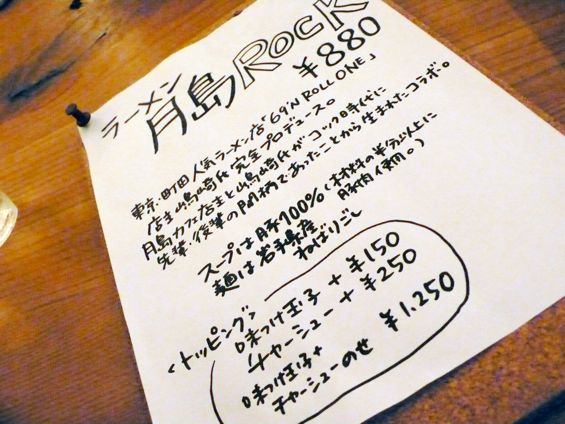 ラーメン
月島 ROCK
¥880
東京・町田人気ラーメン店「69'N ROLL ONE」
店主嶋﨑氏完全プロデュース。
月島カフェ店主と嶋﨑氏がコック時代に
先輩・後輩の関柄であったことから生まれたコラボ。
スープは豚100%(材料の半分以上に
豚肉使用。)
麺は岩手県産
ねばりごし
<トッピング>
味つけ玉子 +¥150
チャーシュー +¥250
味つけ玉子+
チャーシューのせ ¥1.250